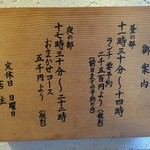 御案内
昼の部
十一時三十分〜十四時
ランチ要予約
二千五百円より（税別）
（前日までの予約のみ）
夜の部
十七時三十分〜二十二時
おまかせコース
五千円より（税別）
定休日 日曜日
店主